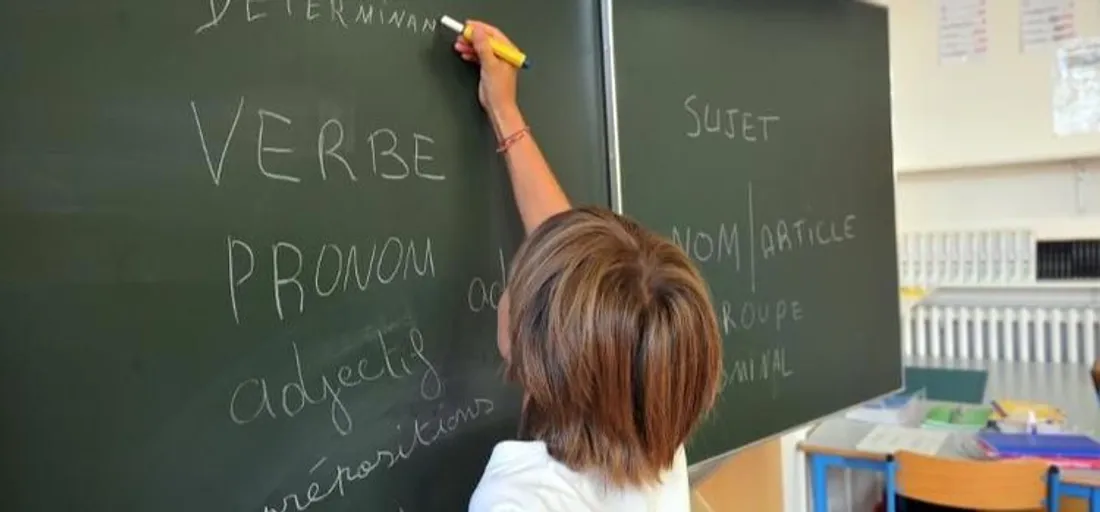 DETERMINAN
VERBE
PRONOM
ad
adjectif
prépositions
SUJET
NOM | ARTICLE
ROUPE
MINAL